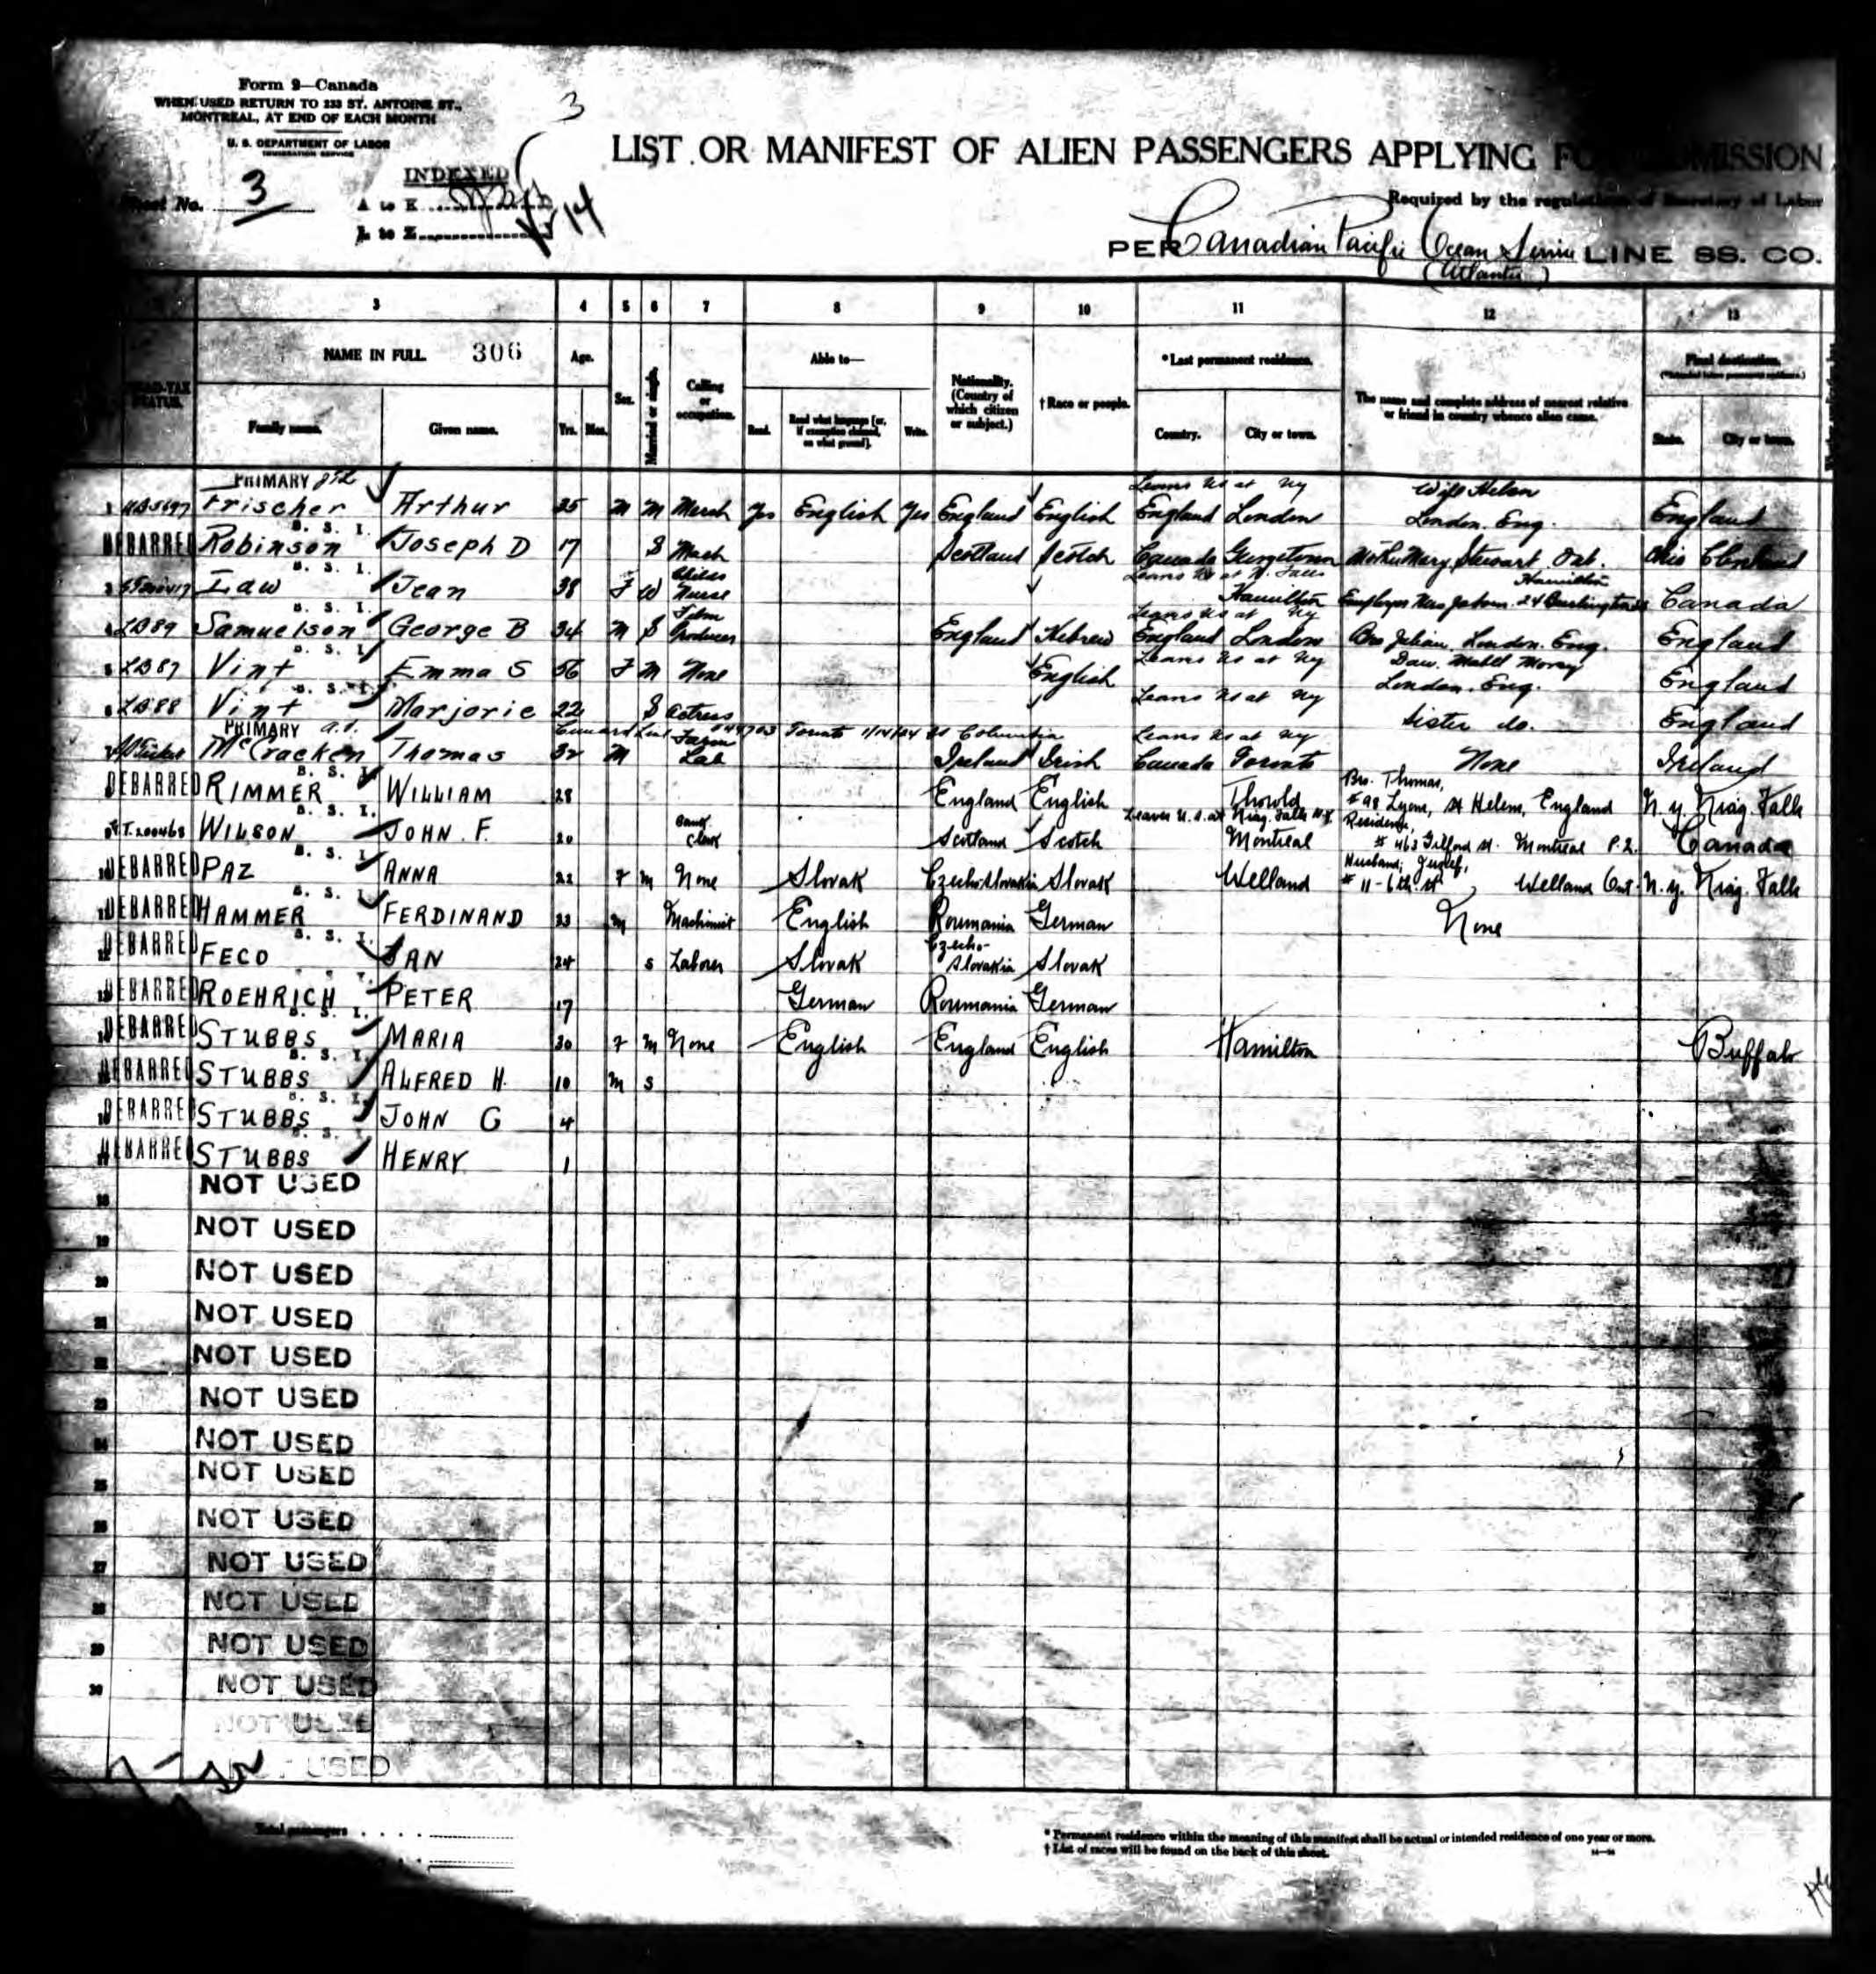 Form 9—Canada
WHEN USED RETURN TO 233 ST. ANTOINE ST.,
MONTREAL, AT END OF EACH MONTH
U. S. DEPARTMENT OF LABOR
IMMIGRATION SERVICE
3
INDEXED
No. 3
A to K
L to Z
14
LIST OR MANIFEST OF ALIEN PASSENGERS APPLYING
Required by the regulations of Secretary of Labor
PER Canadian Pacific Ocean Service LINE SS. CO.
(Atlantic)
3 4 5 6 7 8 9 10 11 12 13
HEAD-TAX STATUS.
NAME IN FULL 306
Family name. Given name.
Age.
Yrs. Mos.
Sex.
Married or single.
Calling or occupation.
Able to—
Read. Read what language [or, if exemption claimed, on what ground]. Write.
Nationality. (Country of which citizen or subject.)
† Race or people.
*Last permanent residence.
Country. City or town.
The name and complete address of nearest relative or friend in country whence alien came.
Final destination.
State. City or town.
PRIMARY Leaves US at NY Wife Helen
1 Frischer Arthur 35 M M Merch Yes English Yes England English England London London. Eng. England
B. S. I.
DEBARRED Robinson Joseph D 17 S Mach Scotland Scotch Canada Georgetown Mother Mary Stewart Ont. Ohio Cleveland
B. S. I. Childs Leaves US at N. Falls Hamilton
3 Law Jean 38 F W Nurse Hamilton Canada
B. S. I. Film Leaves US at NY
4 LB89 Samuelson George B 34 M S Producer England Hebrew England London Bro Julian, London. Eng. England
B. S. I. Leaves US at NY Dau. Mabel
5 LB87 Vint Emma S 56 F M None English London. Eng. England
B. S. I. Leaves US at NY
6 LB88 Vint Marjorie 22 S Actress Sister do. England
PRIMARY Cunard Line Toronto 1/14/24 SS Columbia Leaves US at NY
7 McCracken Thomas 32 M Farm Lab Ireland Irish Canada Toronto None Ireland
B. S. I. Bro. Thomas,
DEBARRED RIMMER WILLIAM 28 England English Thorold #98 Lyons, St Helens, England N. Y. Niag. Falls
B. S. I. Bank Leaves U.S. at Niag. Falls N.Y. Residence,
WILSON JOHN. F. 20 Clerk Scotland Scotch Montreal # 463 Gilford St. Montreal P.Q. Canada
B. S. I. Husband;
DEBARRED PAZ ANNA 22 F M None Slovak CzechoSlovakia Slovak Welland # 11-6th. St, Welland Ont. N. Y. Niag. Falls
B. S. I.
DEBARRED HAMMER FERDINAND 23 M Machinist English Roumania German None
B. S. I.
DEBARRED FECO JAN 24 S Laborer Slovak Czecho-Slovakia Slovak
DEBARRED ROEHRICH PETER 17 German Roumania German
B. S. I.
DEBARRED STUBBS MARIA 30 F M None English England English Hamilton Buffalo
B. S. I.
DEBARRED STUBBS ALFRED H. 10 M S
B. S. I.
DEBARRED STUBBS JOHN G 4
B. S. I.
DEBARRED STUBBS HENRY 1
18 NOT USED
19 NOT USED
20 NOT USED
21 NOT USED
22 NOT USED
23 NOT USED
24 NOT USED
25 NOT USED
26 NOT USED
27 NOT USED
28 NOT USED
29 NOT USED
30 NOT USED
NOT USED
USED
Total passengers
* Permanent residence within the meaning of this manifest shall be actual or intended residence of one year or more.
† List of races will be found on the back of this sheet.